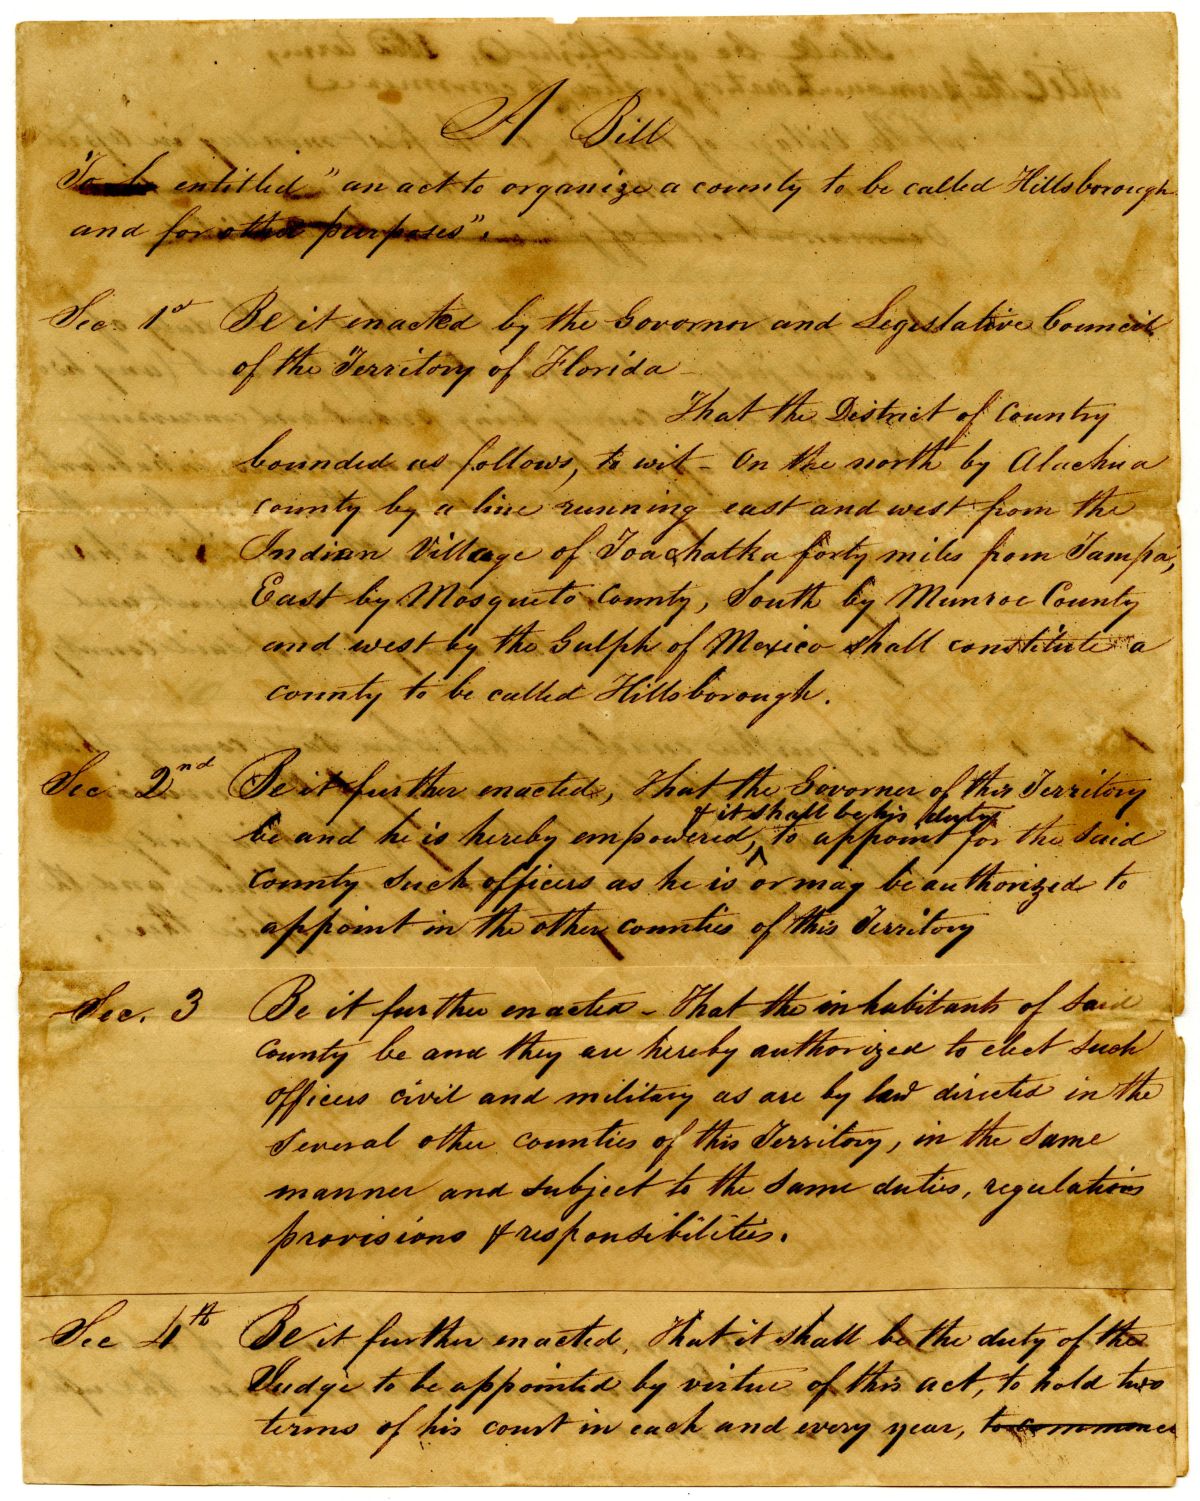 A Bill
To be entitled "an act to organize a county to be called Hillsborough
and for other purposes".
Sec 1st Be it enacted by the Govornor and Legislative Council
of the Territory of Florida
That the District of Country
bounded as follows, to wit - On the north by Alachua
county by a line running east and west from the
Indian Village of Toachatka forty miles from Tampa,
East by Mosqueto County, South by Munroe County
and west by the Gulph of Mexico shall constitute a
county to be called Hillsborough.
Sec. 2nd Be it further enacted, That the Govorner of this Territory
& it shall be his duty
be and he is hereby empowered, ^ to appoint for the said
County such officers as he is or may be authorized to
appoint in the other counties of this Territory
Sec. 3 Be it further enacted - That the inhabitants of said
County be and they are hereby authorized to elect such
officers civil and military as are by law directed in the
several other counties of this Territory, in the same
manner and subject to the same duties, regulations
provisions & responsibilities.
Sec 4th Be it further enacted, That it shall be the duty of the
Judge to be appointed by virtue of this act, to hold two
terms of his court in each and every year, to commence